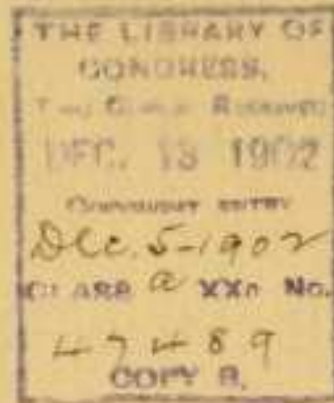 THE LIBRARY OF
CONGRESS,
Two Copies Received
DEC. 13 1902
COPYRIGHT ENTRY
Dec. 5-1902
CLASS a XXc. No.
47489
COPY B.